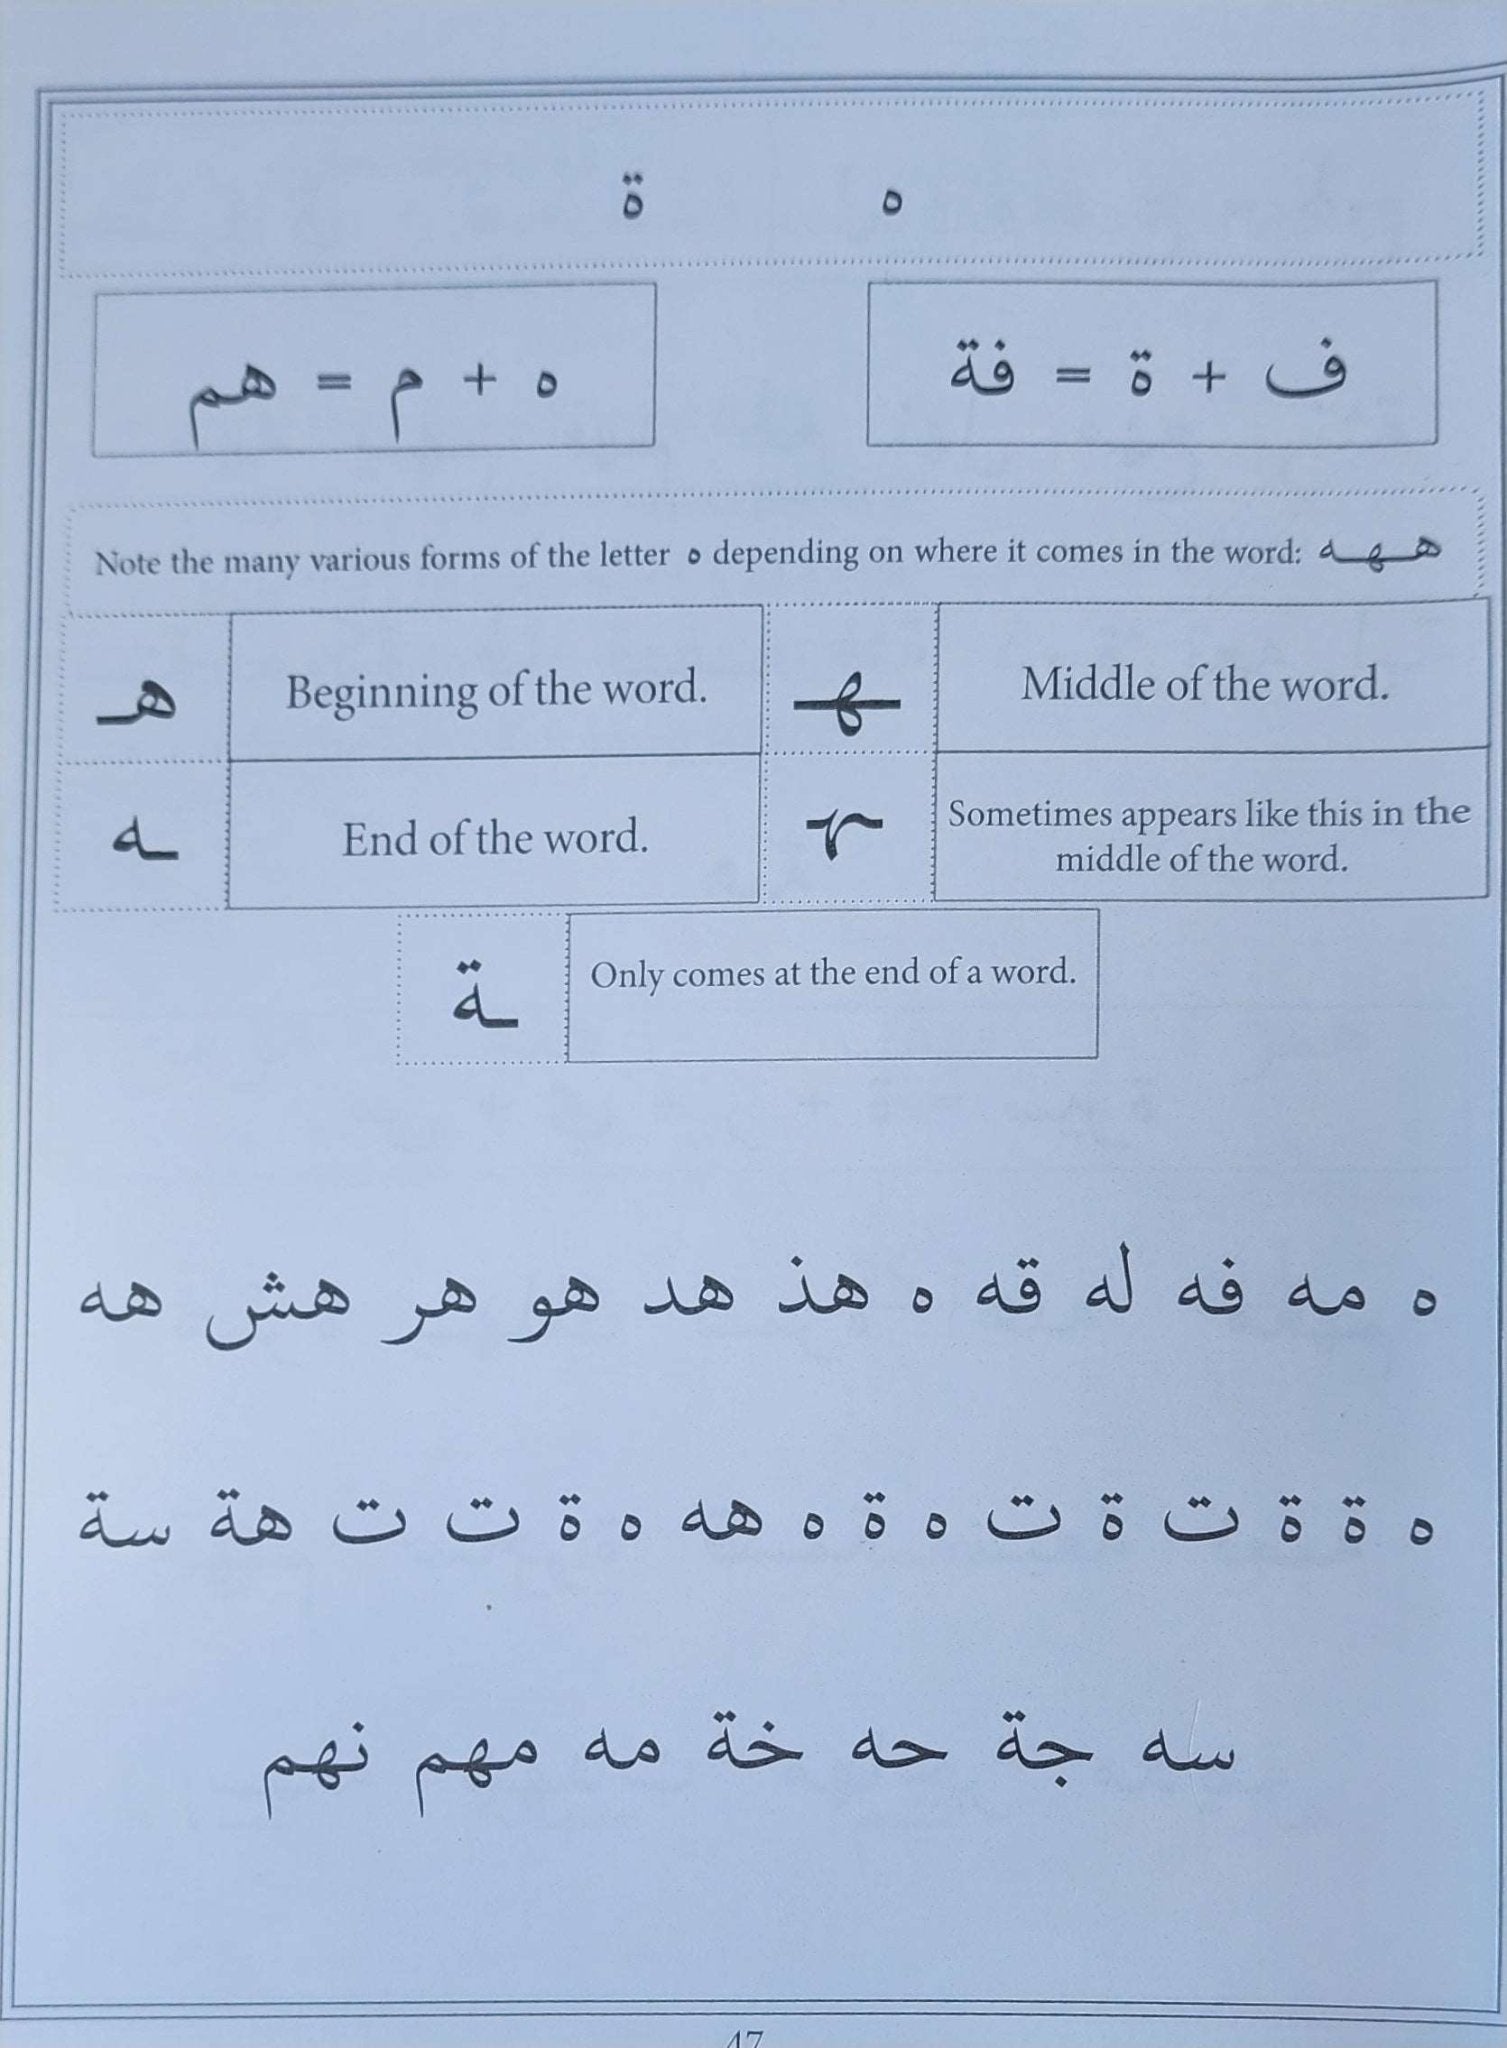 ه ة
ف + ة = فة
ه + م = هم
Note the many various forms of the letter ه depending on where it comes in the word: ههه
هـ Beginning of the word.
ـهـ Middle of the word.
ـه End of the word.
ـهـ Sometimes appears like this in the
middle of the word.
ـة Only comes at the end of a word.
ه مه فه له قه ه هذ هد هو هر هش هه
ه ة ة ت ة ت ه ة ه هه ه ة ت ت هة سة
سه جة حه خة مه مهم نهم
47